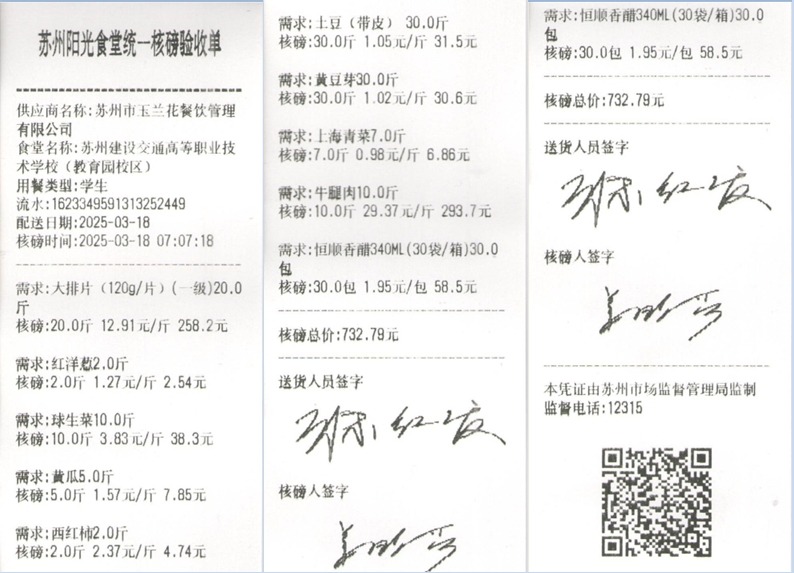 苏州阳光食堂统一核磅验收单
供应商名称:苏州市玉兰花餐饮管理
有限公司
食堂名称:苏州建设交通高等职业技
术学校(教育园校区)
用餐类型:学生
流水:1623349591313252449
配送日期:2025-03-18
核磅时间:2025-03-18 07:07:18
需求:大排片(120g/片)(一级)20.0
斤
核磅:20.0斤 12.91元/斤 258.2元
需求:红洋葱2.0斤
核磅:2.0斤 1.27元/斤 2.54元
需求:球生菜10.0斤
核磅:10.0斤 3.83元/斤 38.3元
需求:黄瓜5.0斤
核磅:5.0斤 1.57元/斤 7.85元
需求:西红柿2.0斤
核磅:2.0斤 2.37元/斤 4.74元
需求:土豆(带皮) 30.0斤
核磅:30.0斤 1.05元/斤 31.5元
需求:黄豆芽30.0斤
核磅:30.0斤 1.02元/斤 30.6元
需求:上海青菜7.0斤
核磅:7.0斤 0.98元/斤 6.86元
需求:牛腿肉10.0斤
核磅:10.0斤 29.37元/斤 293.7元
需求:恒顺香醋340ML(30袋/箱)30.0
包
核磅:30.0包 1.95元/包 58.5元
核磅总价:732.79元
送货人员签字
核磅人签字
需求:恒顺香醋340ML(30袋/箱)30.0
包
核磅:30.0包 1.95元/包 58.5元
核磅总价:732.79元
送货人员签字
核磅人签字
本凭证由苏州市场监督管理局监制
监督电话:12315